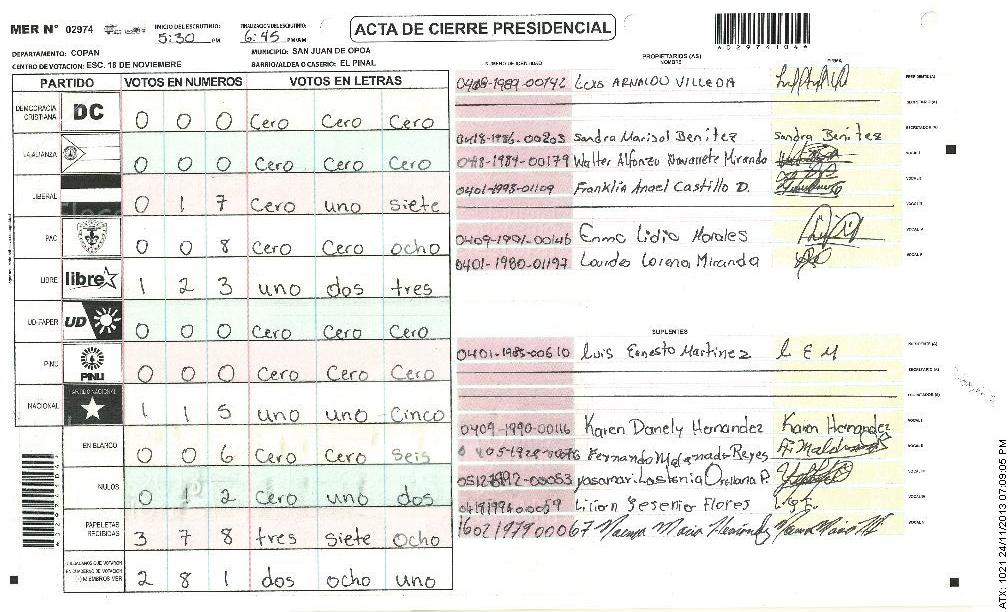 MER N° 02974
INICIO DEL ESCRUTINIO: 5:30 PM
FINALIZACION DEL ESCRUTINIO: 6:45 PM/AM
ACTA DE CIERRE PRESIDENCIAL
DEPARTAMENTO: COPAN
MUNICIPIO: SAN JUAN DE OPOA
CENTRO DE VOTACION: ESC. 18 DE NOVIEMBRE
BARRIO/ALDEA O CASERIO: EL PINAL
PARTIDO VOTOS EN NUMEROS VOTOS EN LETRAS
DEMOCRACIA CRISTIANA DC 0 0 0 Cero Cero Cero
LA ALIANZA 0 0 0 Cero Cero Cero
LIBERAL 0 1 7 Cero uno siete
PAC 0 0 8 Cero Cero ocho
LIBRE libre 1 2 3 uno dos tres
UD-FAPER UD 0 0 0 Cero Cero Cero
PINU PINU 0 0 0 Cero Cero Cero
NACIONAL 1 1 5 uno uno Cinco
EN BLANCO 0 0 6 Cero Cero seis
NULOS 0 1 2 Cero uno dos
PAPELETAS RECIBIDAS 3 7 8 tres siete ocho
CIUDADANOS QUE VOTARON EN CUADERNO DE VOTACION (+) MIEMBROS MER 2 8 1 dos ocho uno
NUMERO DE IDENTIDAD PROPIETARIOS (AS) NOMBRE FIRMA
Luis Arnaldo Villeda PRESIDENTE (A)
SECRETARIO (A)
0418-1986-00203 Sandra Marisol Benítez Sandra Benitez
Walter Alfonzo Navarrete Miranda VOCAL I
0401-1993-01109 Franklin Anael Castillo D. VOCAL II
0409-1991-00146 Enma Lidia Morales
0401-1980-01197 Lourdes Lorena Miranda
SUPLENTES
0401-1985-00610 Luis Ernesto Martinez L E M
SECRETARIO (A)
0409-1990-00116 Karen Danely Hernandez Karen Hernandez
Fernando Maldonado Reyes
Orellana P.
Lilian Yesenia Flores
1602197900067 Norma Maria
ATX: 1021 24/11/2013 07:09:05 PM